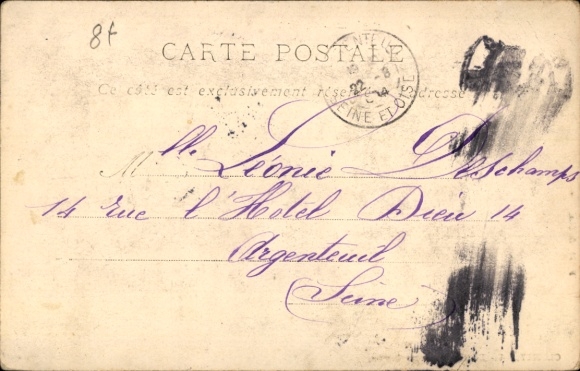 8f
CARTE POSTALE
Ce côté est exclusivement réservé à l'adresse
SEINE ET OISE
M lle Léonie Deschamps
14 rue l'Hotel Dieu 14
Argenteuil
Seine